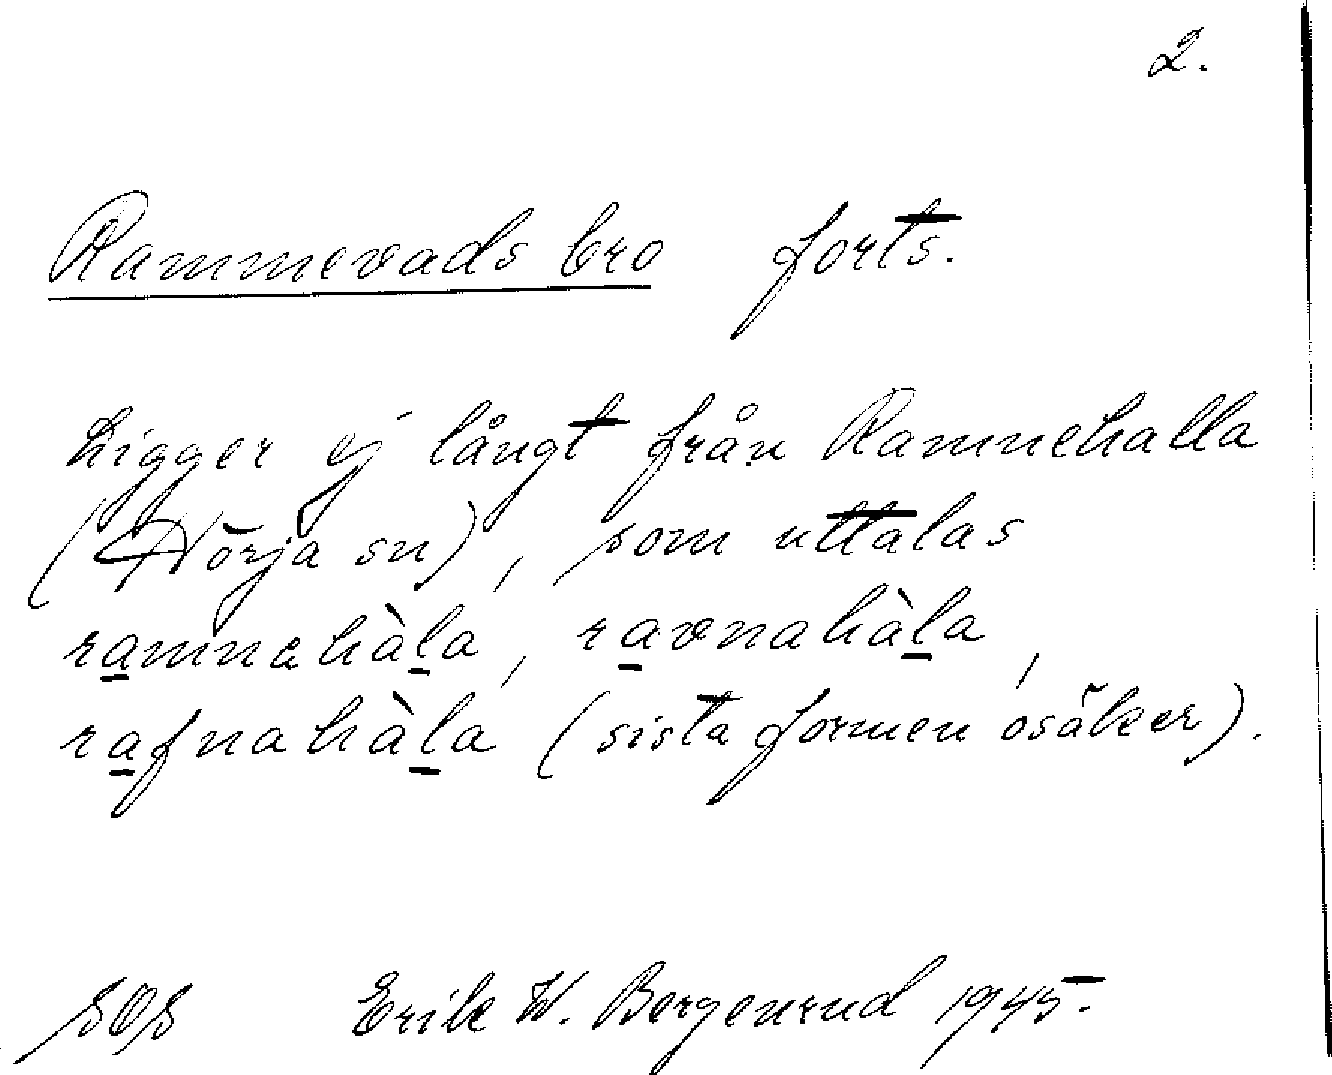 2.
Rammevads bro forts.
Ligger ej långt från Ramnehalla
(Hörja sn), som uttalas
ramnahàla, ravnahàla,
rafnahàla (sista formen osäker).
SOS Erik W. Bergenrud 1945.